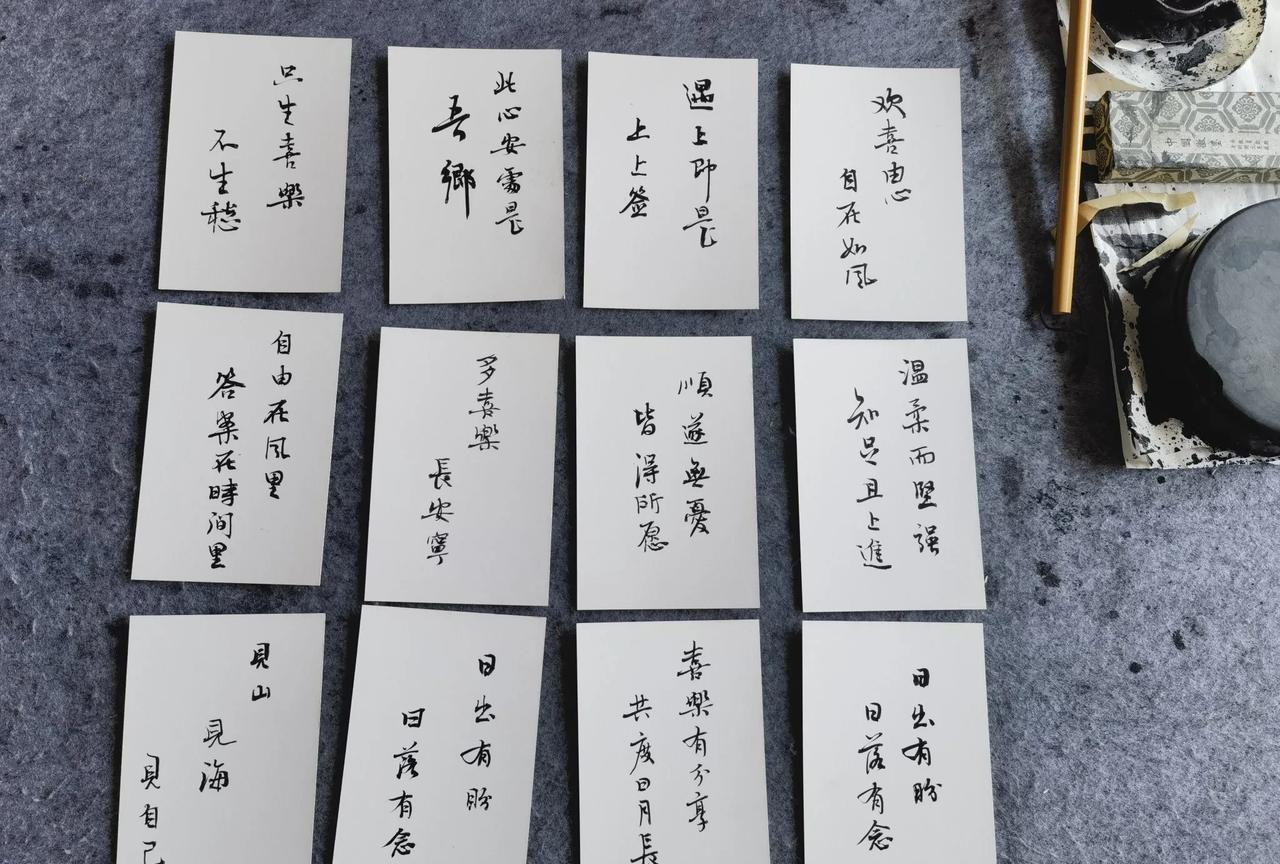 只生喜樂
不生愁
此心安處是
吾鄉
遇上即是
上上签
欢喜由心
自在如风
自由在风里
答案在時间里
多喜樂
長安寧
順遂無憂
皆得所愿
温柔而堅强
知足且上進
見山
見海
見自己
日出有盼
日落有念
喜樂有分享
共度日月長
日出有盼
日落有念
中國徽墨